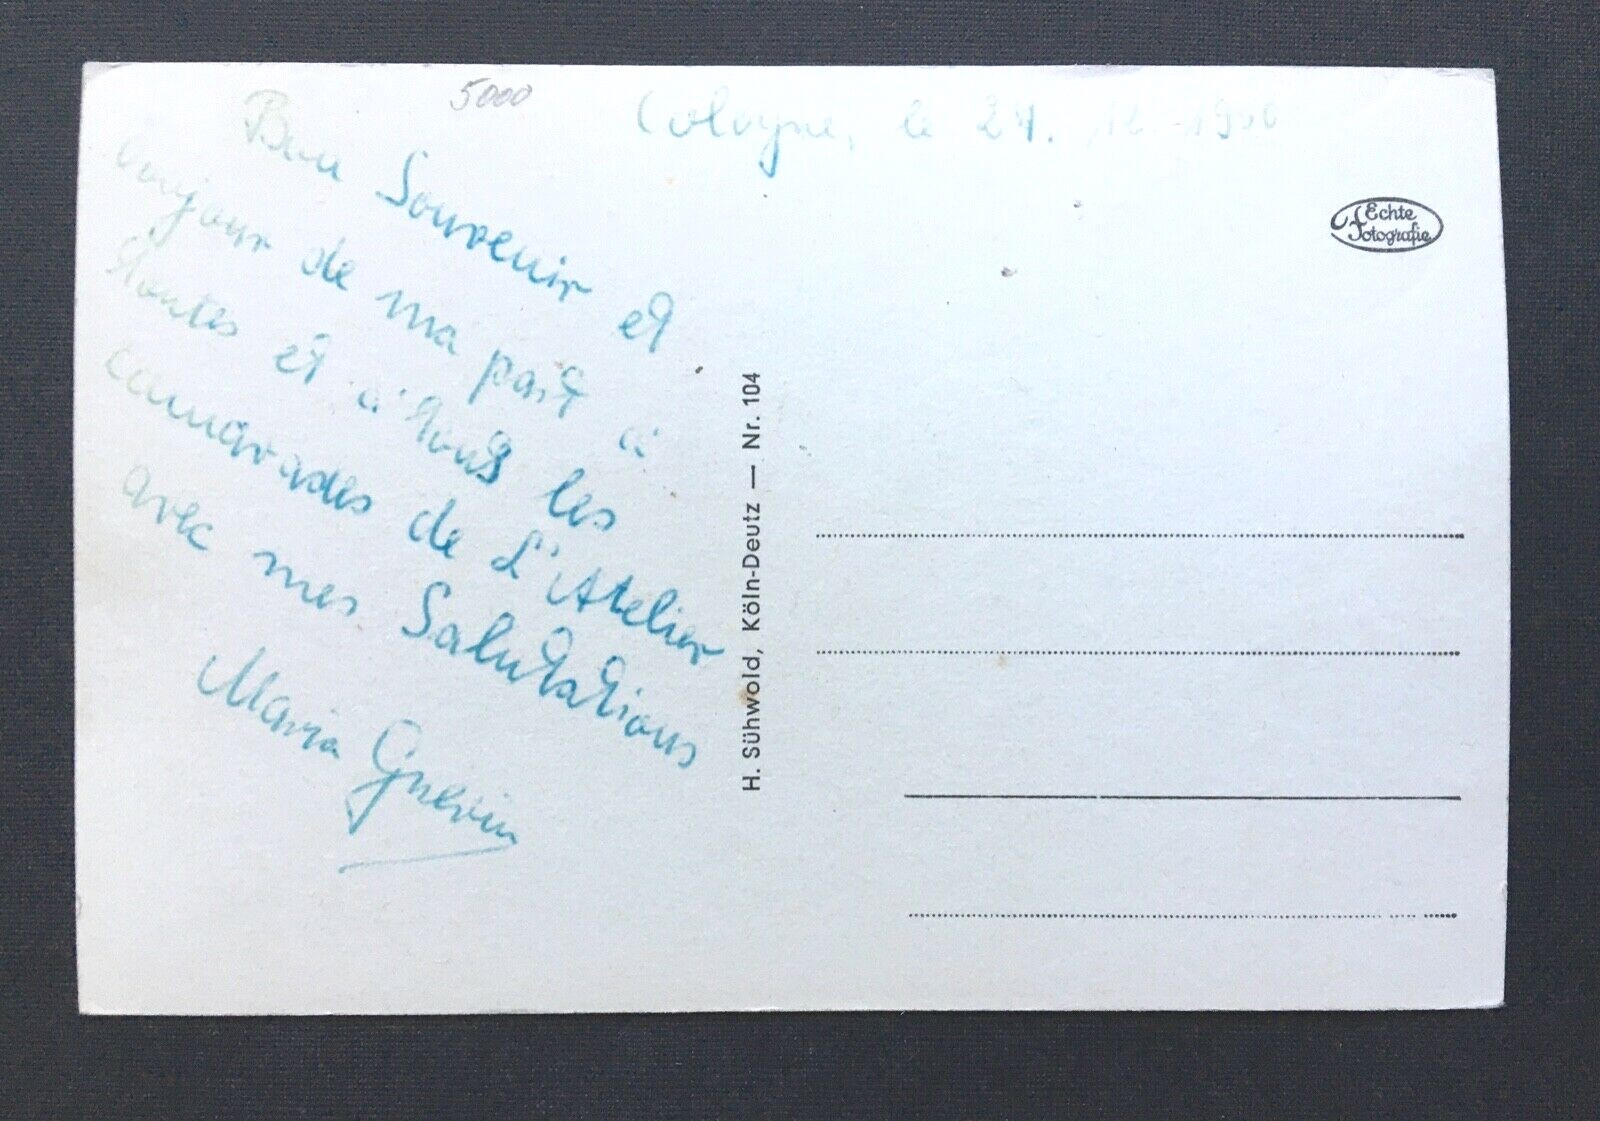 5000
Cologne, le 24. 12. 19
Bon Souvenir et
bonjour de ma part à
toutes et à tous les
camarades de L'Atelier
avec mes Salutations
Maria Guerin
H. Sühwold, Köln-Deutz — Nr. 104
Echte
Fotografie